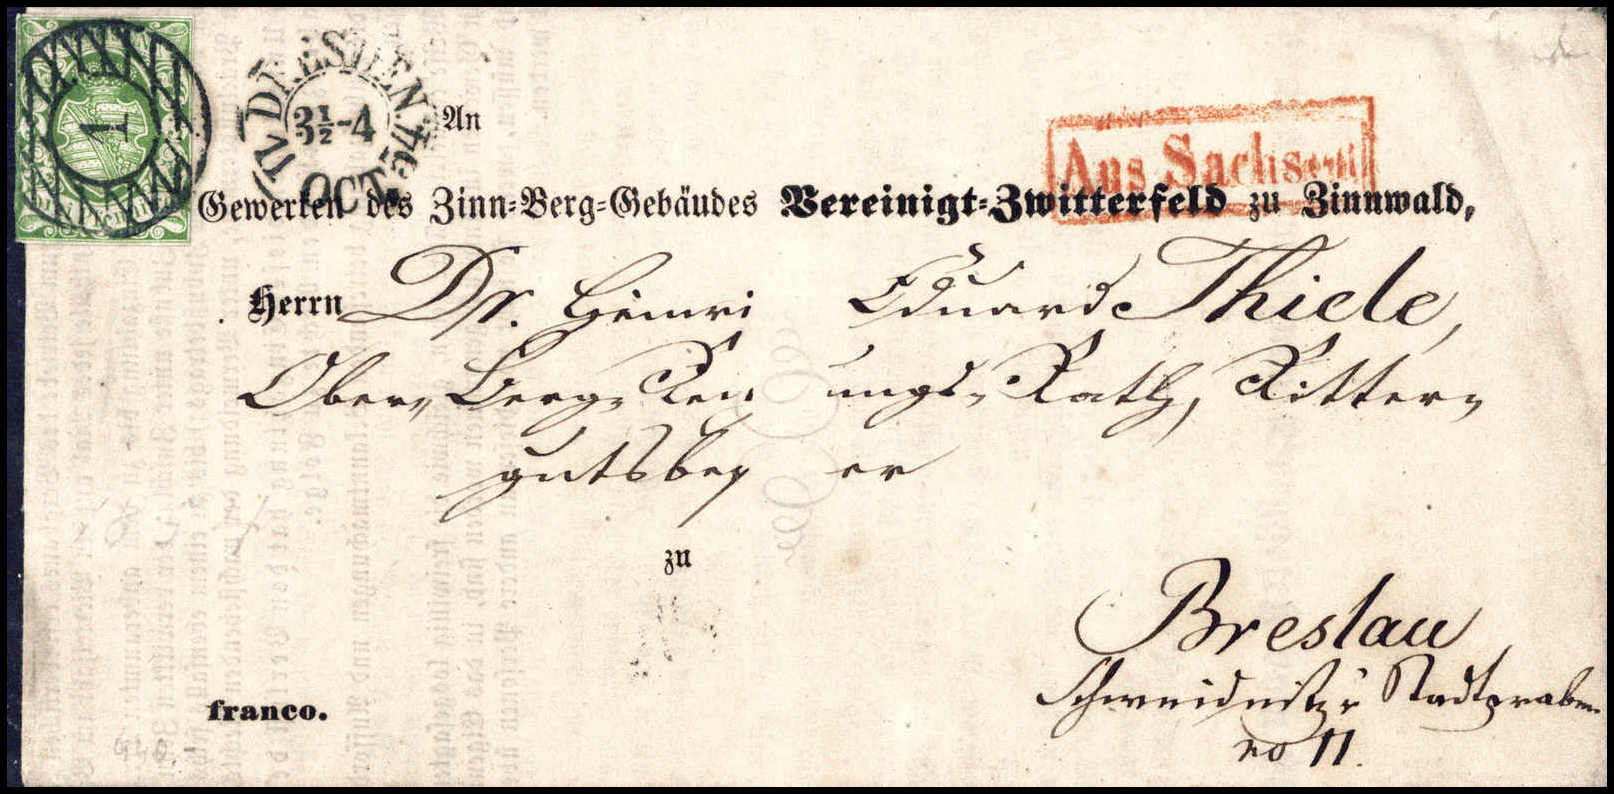 1
DRESDEN
3½-4
OCT
An
Aus Sachsen
Gewerken des Zinn-Berg-Gebäudes Vereinigt-Zwitterfeld zu Zinnwald,
Herrn Dr. Heinri Eduard Thiele,
Ober- Berg- ungs- Rath, Ritter-
gutsbes er
zu
Breslau
Schweidnitzer Stadtgraben
no 11.
franco.